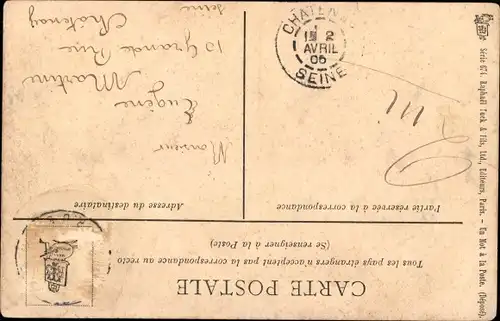 CARTE POSTALE
Tous les pays étrangers n'acceptent pas la correspondance au recto
(Se renseigner à la Poste)
Partie réservée à la correspondance
Adresse du destinataire
Monsieur
Eugène
Martin
10 Grande Rue
Châtenay
Seine
CHÂTENAY
2
AVRIL
06
SEINE
Série 674. Raphaël Tuck & Fils, Ltd., Editeurs, Paris. - Un Mot à la Poste. (Déposé).